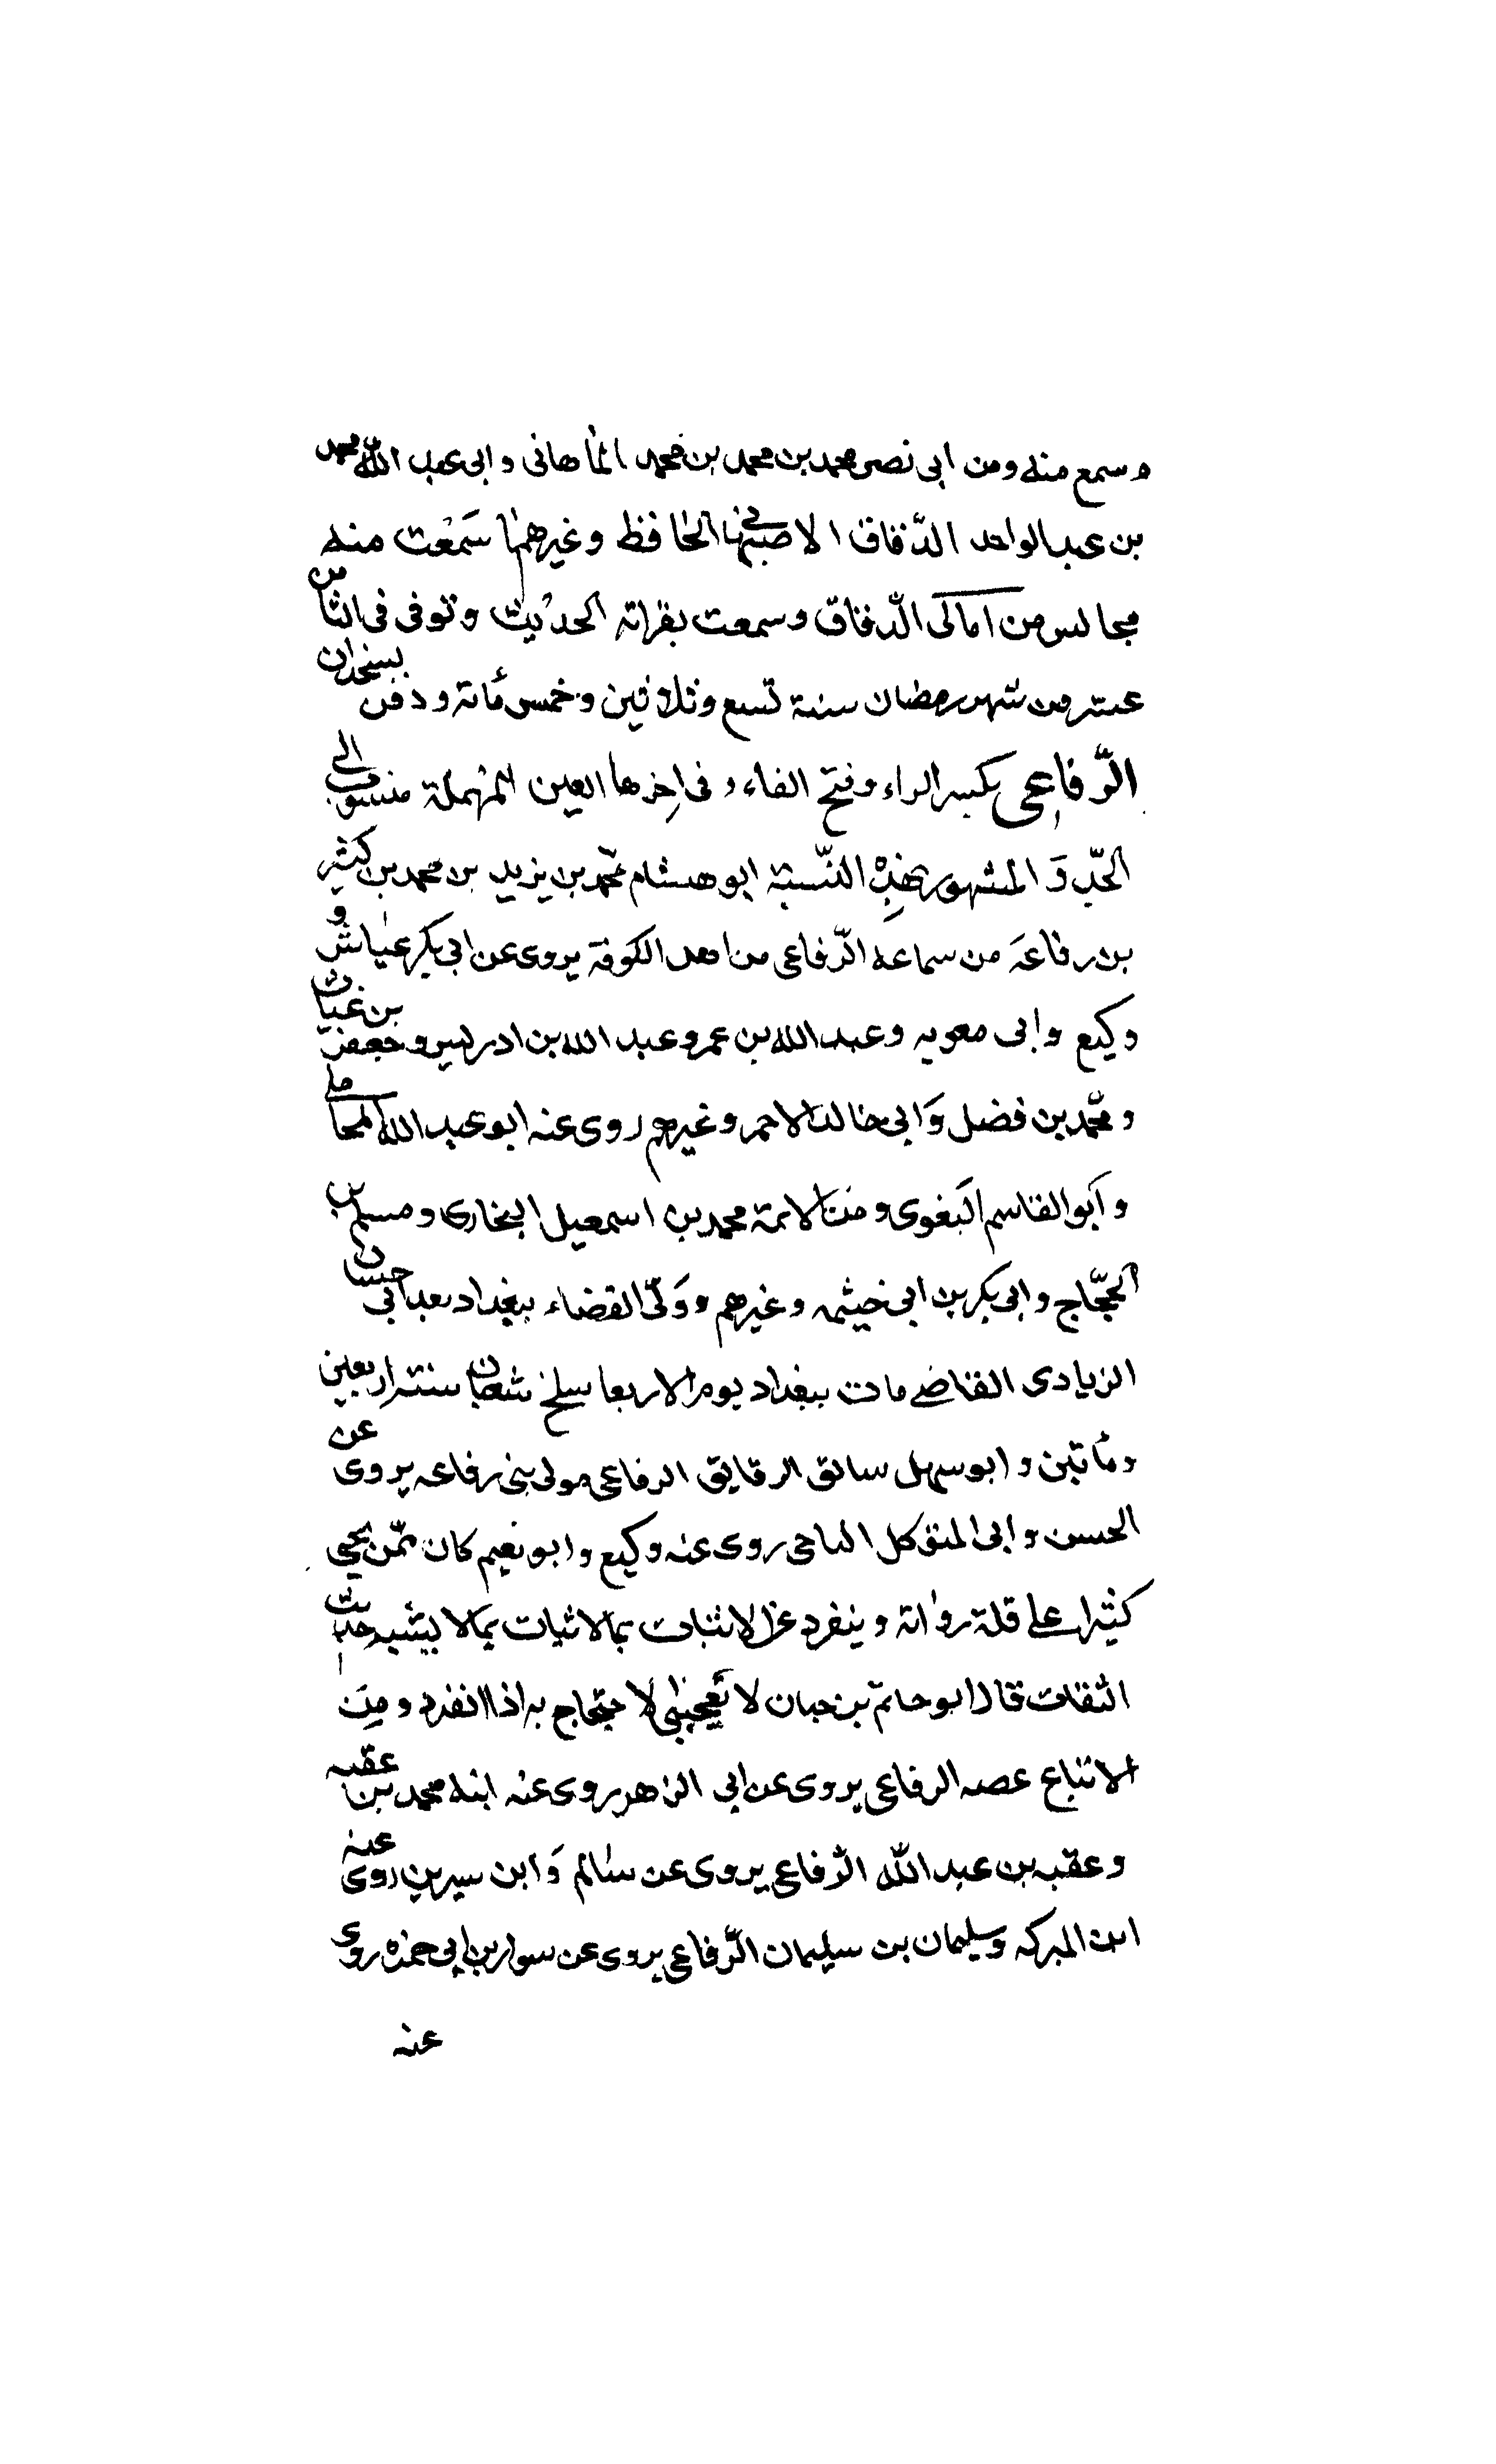 وسمع منه ومن ابى نصر محمد بن محمد بن محمد الماهانى وابى عبد الله محمد
بن عبد الواحد الدّقاق الاصبهانى الحافظ وغيرهما سَمعْت منه
مجالس من امالى الدّقاق وسمعت بقراته الحديث وتوفى فى الثامن
عشر من شهر رمضان سنة تسع وثلاثين وخمس مائة ودفن بسنجدان
الرّفاعى بكسر الراء وفتح الفاء وفى اخرها العين المهملة منسوب الى
الجدّ وَ المشهور بهذِهْ النّسبة ابو هشام محمّد بن يزيد بن محمد بن كثير
بن رفاعَه من سماعه الرّفاعى من اهل الكوفة يروى عن ابى بكر عياش و
وكيع وابى معويه وعبد الله بن عمر وعبد الله بن ادريس وحفص بن غياث
ومحّمد بن فضل وَابى خالد الاحمر وغيرهم روى عنه ابو عبد الله المحاملى
وابو القاسم البَغوى ومن الائمة محمد بن اسمعيل البخارى ومسلم بن
الحجّاج وابى بكر بن ابى خيثمه وغيرهم ووَلّى القضاء ببغداد بعد ابى حسان
الزيادى القاضى مات ببغداد يوم الاربعا سلخ شعبان سنة اربعين
ومأتين وابو سهل سابق الرقايق الرفاعى مولى بنى رفاعه يروى عن
الحسن وابى المتوكل الناجى روى عنه وكيع وابو نعيم كان ممّن يخطى
كثيرا على قلة رواته وينفرد عن الاثبات بما لا يشبه حديث
الثقات قال ابو حاتم بن حبان لا يُعجبنى الاحتجاج به اذا انفرد ومِن
الاتباع عصه الرفاعى يروى عن ابى الزاهر روى عنه ابنه محمد بن عقبه
وعقبه بن عبد الله الرّفاعى يروى عن سالم وَابن سيرين روى عنه
ابن المبركه وسليمان بن سليمان الرّفاعى يروى عن سوار بن ابى حمزه روى
عنه